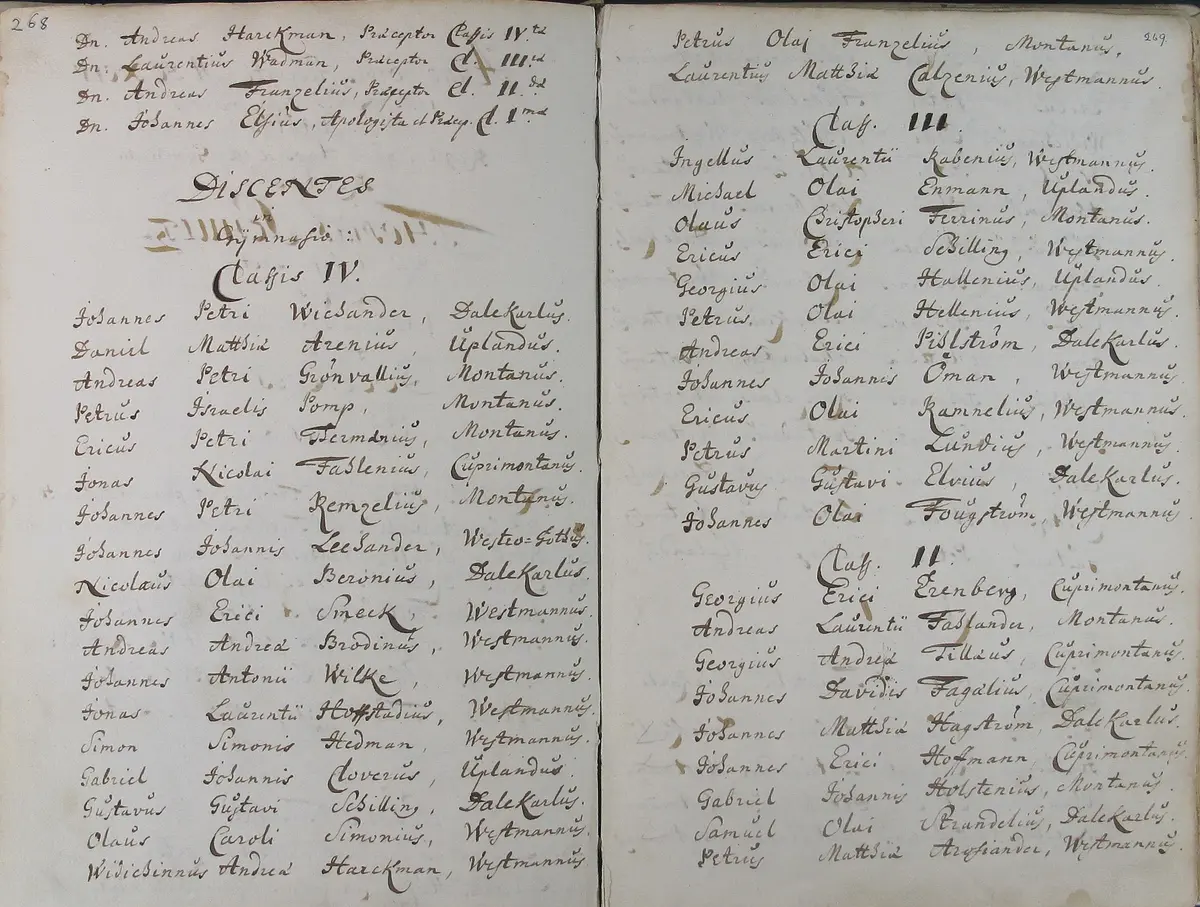 268
Dn. Andreas Harckman, Præceptor Classis IV.tæ
Dn. Laurentius Wadman, Præceptor Cl. III.æ
Dn. Andreas Franzelius, Præceptor Cl. II.dæ
Dn. Johannes Elfvius, Apologista et Præcep. Cl. I.mæ
DISCENTES
in
Gymnasio:
Classis IV.
Johannes Petri Wichander, DaleKarlus.
Daniel Matthiæ Arenius, Uplandus.
Andreas Petri Grönvallius, Montanus.
Petrus Israelis Pomp, Montanus.
Ericus Petri Fermænius, Montanus.
Jonas Nicolai Fahlenius, Cuprimontanus.
Johannes Petri Remzelius, Montanus.
Johannes Johannis Lechander, Westro=Gothus.
Nicolaus Olai Beronius, DaleKarlus.
Johannes Erici SmecK, Westmannus.
Andreas Andreæ Brodinus, Westmannus.
Johannes Antonii WilKe, Westmannus.
Jonas Laurentii Hoffstadius, Westmannus.
Simon Simonis Hedman, Westmannus.
Gabriel Johannis Cloverus, Uplandus.
Gustavus Gustavi Schilling, DaleKarlus.
Olaus Caroli Simonius, Westmannus.
Widichinnus Andreæ Harckman, Westmannus.
269.
Petrus Olai Franzelius, Montanus.
Laurentius Matthiæ Calzenius, Westmannus.
Class. III.
Ingellus Laurentii Rabenius, Westmannus.
Michael Olai Enmann, Uplandus.
Olaus Christopheri Ferrinus, Montanus.
Ericus Erici Schilling, Westmannus.
Georgius Olai Hallenius, Uplandus.
Petrus Olai Hellenius, Westmannus.
Andreas Erici Pihlström, DaleKarlus.
Johannes Johannis Öman, Westmannus.
Ericus Olai Ramnelius, Westmannus.
Petrus Martini Lundius, Westmannus.
Gustavus Gustavi Elvius, DaleKarlus.
Johannes Olai Fougström, Westmannus.
Class. II.
Georgius Erici Erenberg, Cuprimontanus.
Andreas Laurentii Fahlander, Montanus.
Georgius Andreæ Tillæus, Cuprimontanus.
Johannes Davidis Fagalius, Cuprimontanus.
Johannes Matthiæ Hagström, DaleKarlus.
Johannes Erici Hofmann, Cuprimontanus.
Gabriel Johannis Holstenius, Montanus.
Samuel Olai Strandelius, DaleKarlus.
Petrus Matthiæ Arosiander, Westmannus.